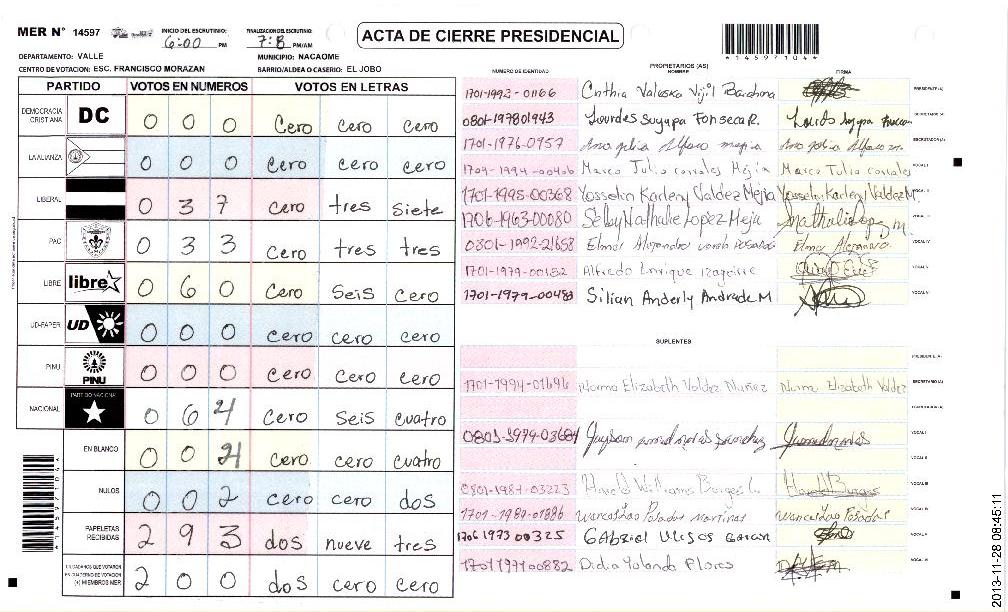 MER N° 14597 INICIO DEL ESCRUTINIO: 6:00 PM FINALIZACION DEL ESCRUTINIO: PM/AM
ACTA DE CIERRE PRESIDENCIAL
*145971044*
DEPARTAMENTO: VALLE MUNICIPIO: NACAOME
CENTRO DE VOTACION: ESC. FRANCISCO MORAZAN BARRIO/ALDEA O CASERIO: EL JOBO
PARTIDO VOTOS EN NUMEROS VOTOS EN LETRAS
DEMOCRACIA CRISTIANA DC 0 0 0 Cero cero cero
LA ALIANZA 0 0 0 cero cero cero
LIBERAL 0 3 7 cero tres siete
PAC 0 3 3 cero tres tres
LIBRE libre 0 6 0 cero seis cero
UD-FAPER UD 0 0 0 cero cero cero
PINU PINU 0 0 0 cero cero cero
NACIONAL PARTIDO NACIONAL 0 6 4 cero seis cuatro
EN BLANCO 0 0 4 cero cero cuatro
NULOS 0 0 2 cero cero dos
PAPELETAS RECIBIDAS 2 9 3 dos nueve tres
CIUDADANOS QUE VOTARON EN CUADERNO DE VOTACION (+) MIEMBROS MER 2 0 0 dos cero cero
PROPIETARIOS (AS)
NUMERO DE IDENTIDAD NOMBRE FIRMA
1701-1992-01166 Cinthia Valeska Vijil Barahona PRESIDENTE (A)
0801-197801943 Lourdes Suyapa Fonseca R. SECRETARIO (A)
1701-1976-0957 Alfaro ESCRUTADOR (A)
Marco Tulio Corrales Mejia Marco Tulio Corrales VOCAL I
1701-1995-00368 Yosselin Karleny Valdez Mejia Yosselin Karleny Valdez M. VOCAL II
1706-1963-00080 Selby Nathalie Lopez Mejia Nathalie Lopez M.
0801-1992-21658 Elmer Alejandro Elmer Alejandro VOCAL IV
1701-1979-00182 Alfredo Enrique Izaguirre VOCAL V
1701-1979-00483 Silian Anderly Andrade M VOCAL VI
SUPLENTES
PRESIDENTE (A)
1701-1994-01696 Norma Elizabeth Valdez Nuñez Norma Elizabeth Valdez SECRETARIO (A)
ESCRUTADOR (A)
VOCAL I
VOCAL II
0801-1987-03223 Harold Williams Borges L. Harold Borges VOCAL III
1701-1987-01886 Wenceslao Posadas Martinez Wenceslao Posadas VOCAL IV
1706 1973 00325 Gabriel Ulises VOCAL V
1701 1971 00882 Didia Yolanda Flores VOCAL VI
*145971044*
2013-11-28 08:45:11